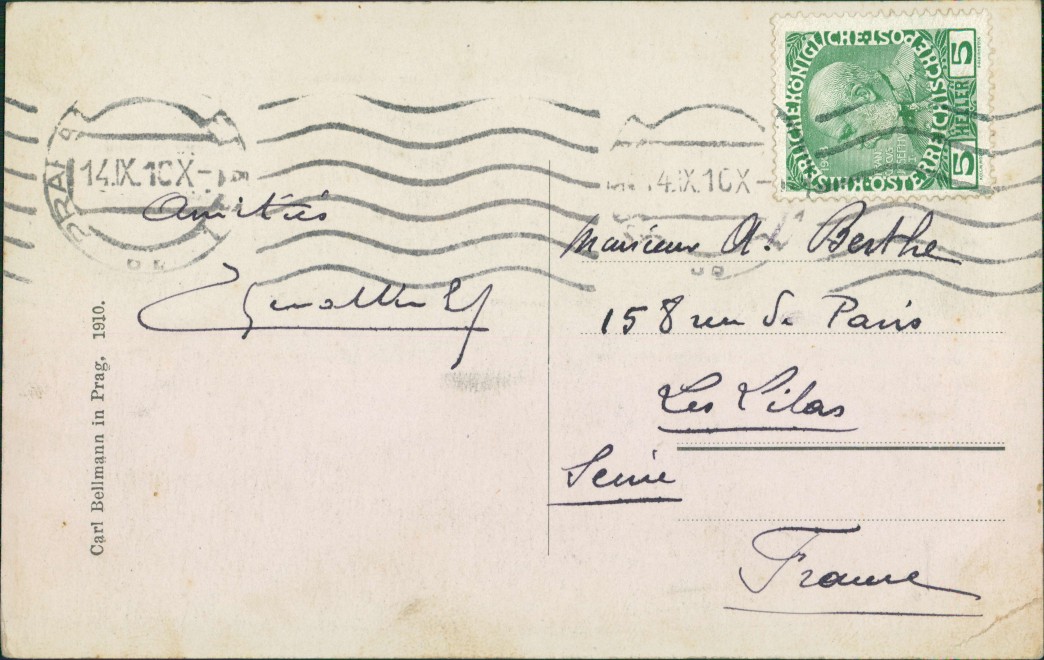 KAISERLICHE KÖNIGLICHE ÖSTERREICHISCHE POST
5 HELLER 5
14.IX.10X-
14.IX.10X-
Amitiés
Monsieur A. Berthe
158 rue de Paris
Les Lilas
Seine
France
Carl Bellmann in Prag, 1910.